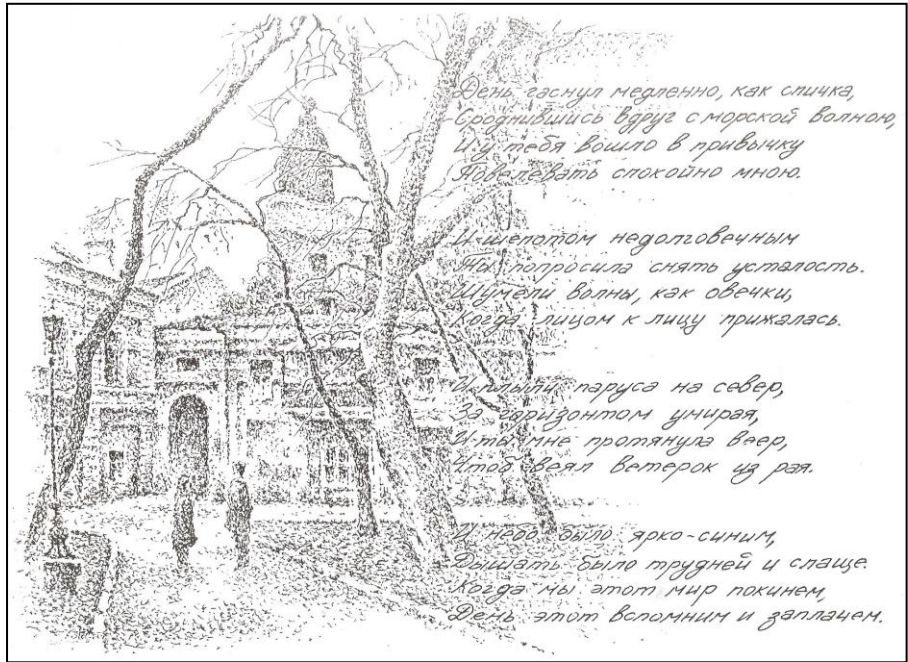 День гаснул медленно, как спичка,
Сроднившись вдруг с морской волною,
И у тебя вошло в привычку
Повелевать спокойно мною.
И шепотом недолговечным
Ты попросила снять усталость.
Шумели волны, как овечки,
Когда лицом к лицу прижалась.
И плыли паруса на север,
За горизонтом умирая,
И ты мне протянула веер,
Чтоб веял ветерок из рая.
И небо было ярко-синим,
Дышать было трудней и слаще.
Когда мы этот мир покинем,
День этот вспомним и заплачем.